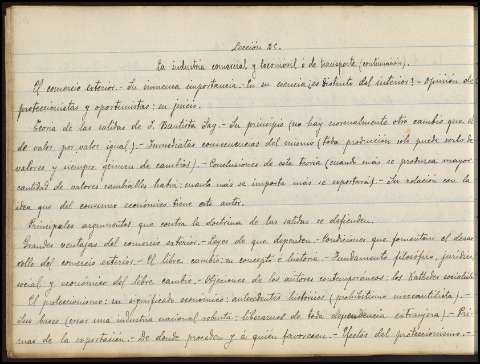 Lección 25.
La industria comercial y locomovil ó de transporte (continuación).
El comercio exterior. - Su inmensa importancia. - Es en esencia ¿es distinto del interior? - Opinión de
proteccionistas y oportunistas: su juicio.
Teoria de las salidas de J. Bautista Say. - Su principio (no hay normalmente otro cambio que el
de valor por valor igual). - Inmediatas consecuencias del mismo (toda producción solo puede surtir de
valores y siempre género de cambios). - Conclusiones de esta teoría (cuando más se produzca mayor
cantidad de valores cambiables habrá: cuanto más se importa más se exportará). - Su relación con la
idea que del consumo económico tiene este autor.
Principales argumentos que contra la doctrina de las salidas se defienden.
Grandes ventajas del comercio exterior. - Leyes de que dependen. - Condiciones que fomentan el desar
rollo del comercio exterior. - El libre cambio: su concepto é historia. - Fundamento filosófico, jurídico
social y económico del libre cambio. - Objeciones de los autores contemporáneos: los Katheder socialistas
El proteccionismo: su significado económico: antecedentes históricos (prohibitismo mercantilista). -
Sus bases (crear una industria nacional robusta - liberarnos de toda dependencia extranjera). - Pri
mas de la exportación. - De donde proceden y á quién favorecen. - Efectos del proteccionismo. -